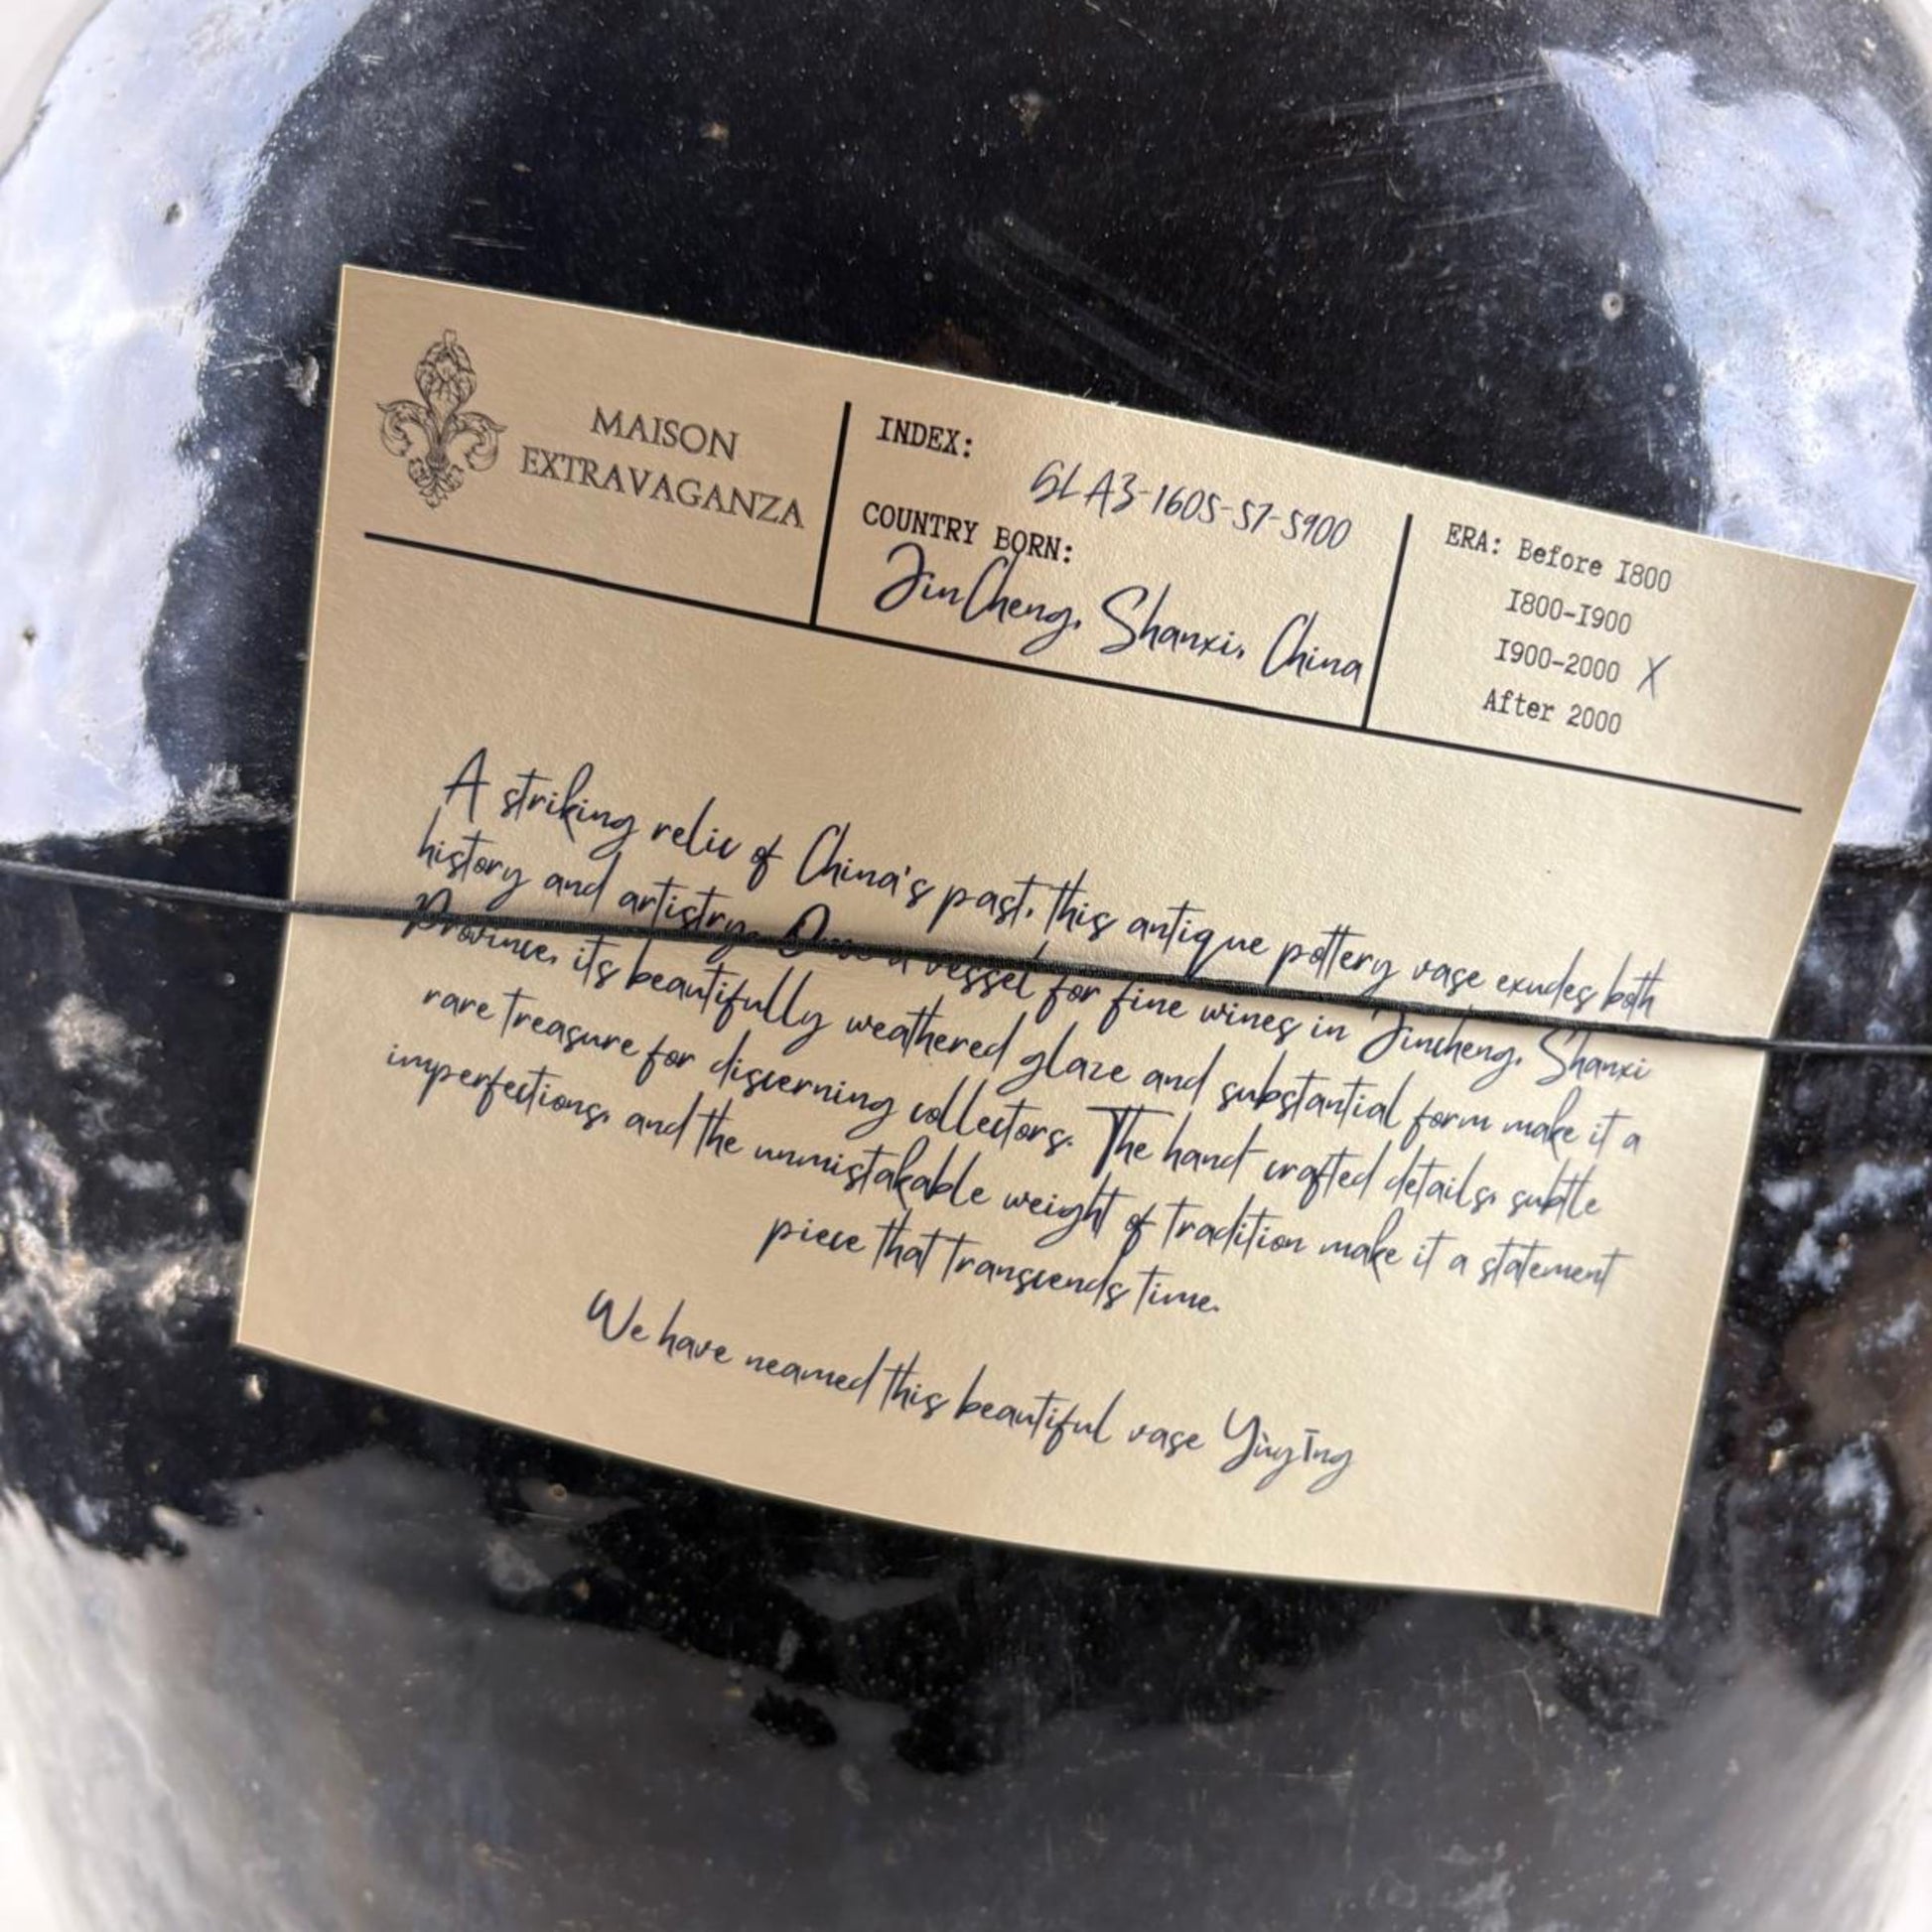 MAISON
EXTRAVAGANZA
INDEX:
GLA3-1605-57-5900
COUNTRY BORN:
JinCheng, Shanxi, China
ERA: Before 1800
1800-1900
1900-2000 X
After 2000
A striking relic of China's past, this antique pottery vase exudes both
history and artistry. Once a vessel for fine wines in Jincheng, Shanxi
Province, its beautifully weathered glaze and substantial form make it a
rare treasure for discerning collectors. The hand crafted details, subtle
imperfections, and the unmistakable weight of tradition make it a statement
piece that transcends time.
We have neamed this beautiful vase Yùyīng